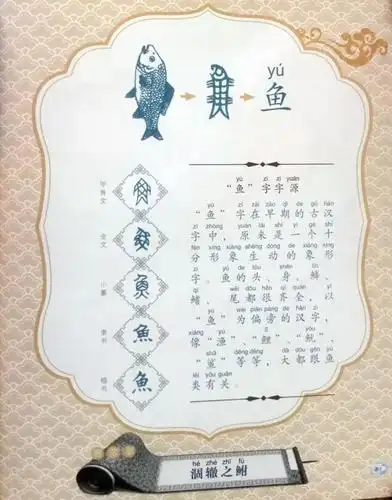 yú
鱼
yú zì zì yuán
“鱼”字字源
yú zì zǎi zǎo qī de gǔ hàn
“鱼”字在早期的古汉
zì zhōng yuán lái shì yí gè shí
字中,原来是一个十
fēn xíng xiàng shēng dòng de xiàng xíng
分形象生动的象形
zì yú de tóu shēn lín
字。鱼的头、身、鳞、
qí wěi dōu hěn qí quán yǐ
鳍、尾都很齐全。以
yú wéi piān páng de hàn zì
“鱼”为偏旁的汉字,
xiàng yú lǐ yóu
像“渔”、“鲤”、“鱿”、
shā děng děng dà dōu gēn yú
“鲨”等等,大都跟鱼
lèi yǒu guān
类有关。
甲骨文
金文
小篆
隶书
魚
楷书
魚
hé zhé zhī fù
涸辙之鲋